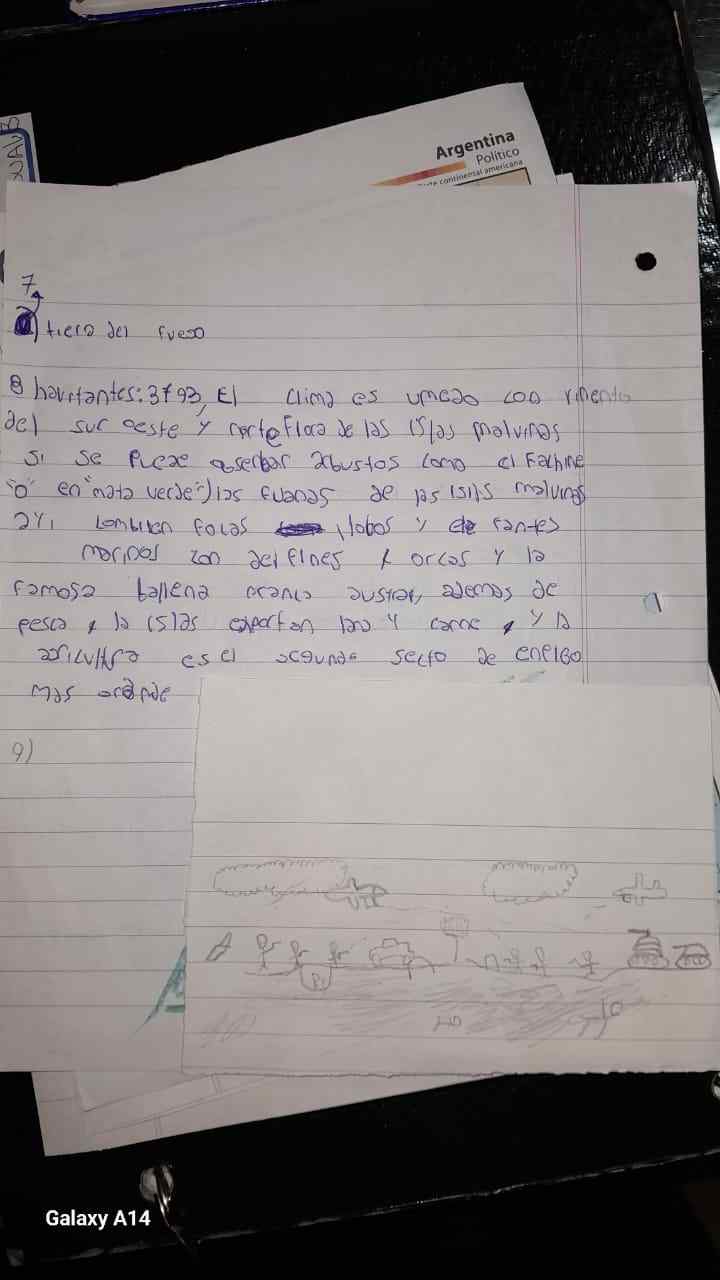 Argentina
Político
continental americana
7
tiera del fuego
8 havitantes: 3793, El clima es umedo con viento
del sur oeste y norte Flora de las islas malvinas
si se puede oserbar arbustos como el Fachine
"o" en "mata verde") las fuanas de las islas malvinas
ayi tambien focas, lobos y elefantes
marinos con delfines y orcas y la
famosa ballena franca austral, ademas de
pesca y la islas exportan lana y carne, y la
agricultura es el segundo secto de enpleo
mas grande
9)
Galaxy A14